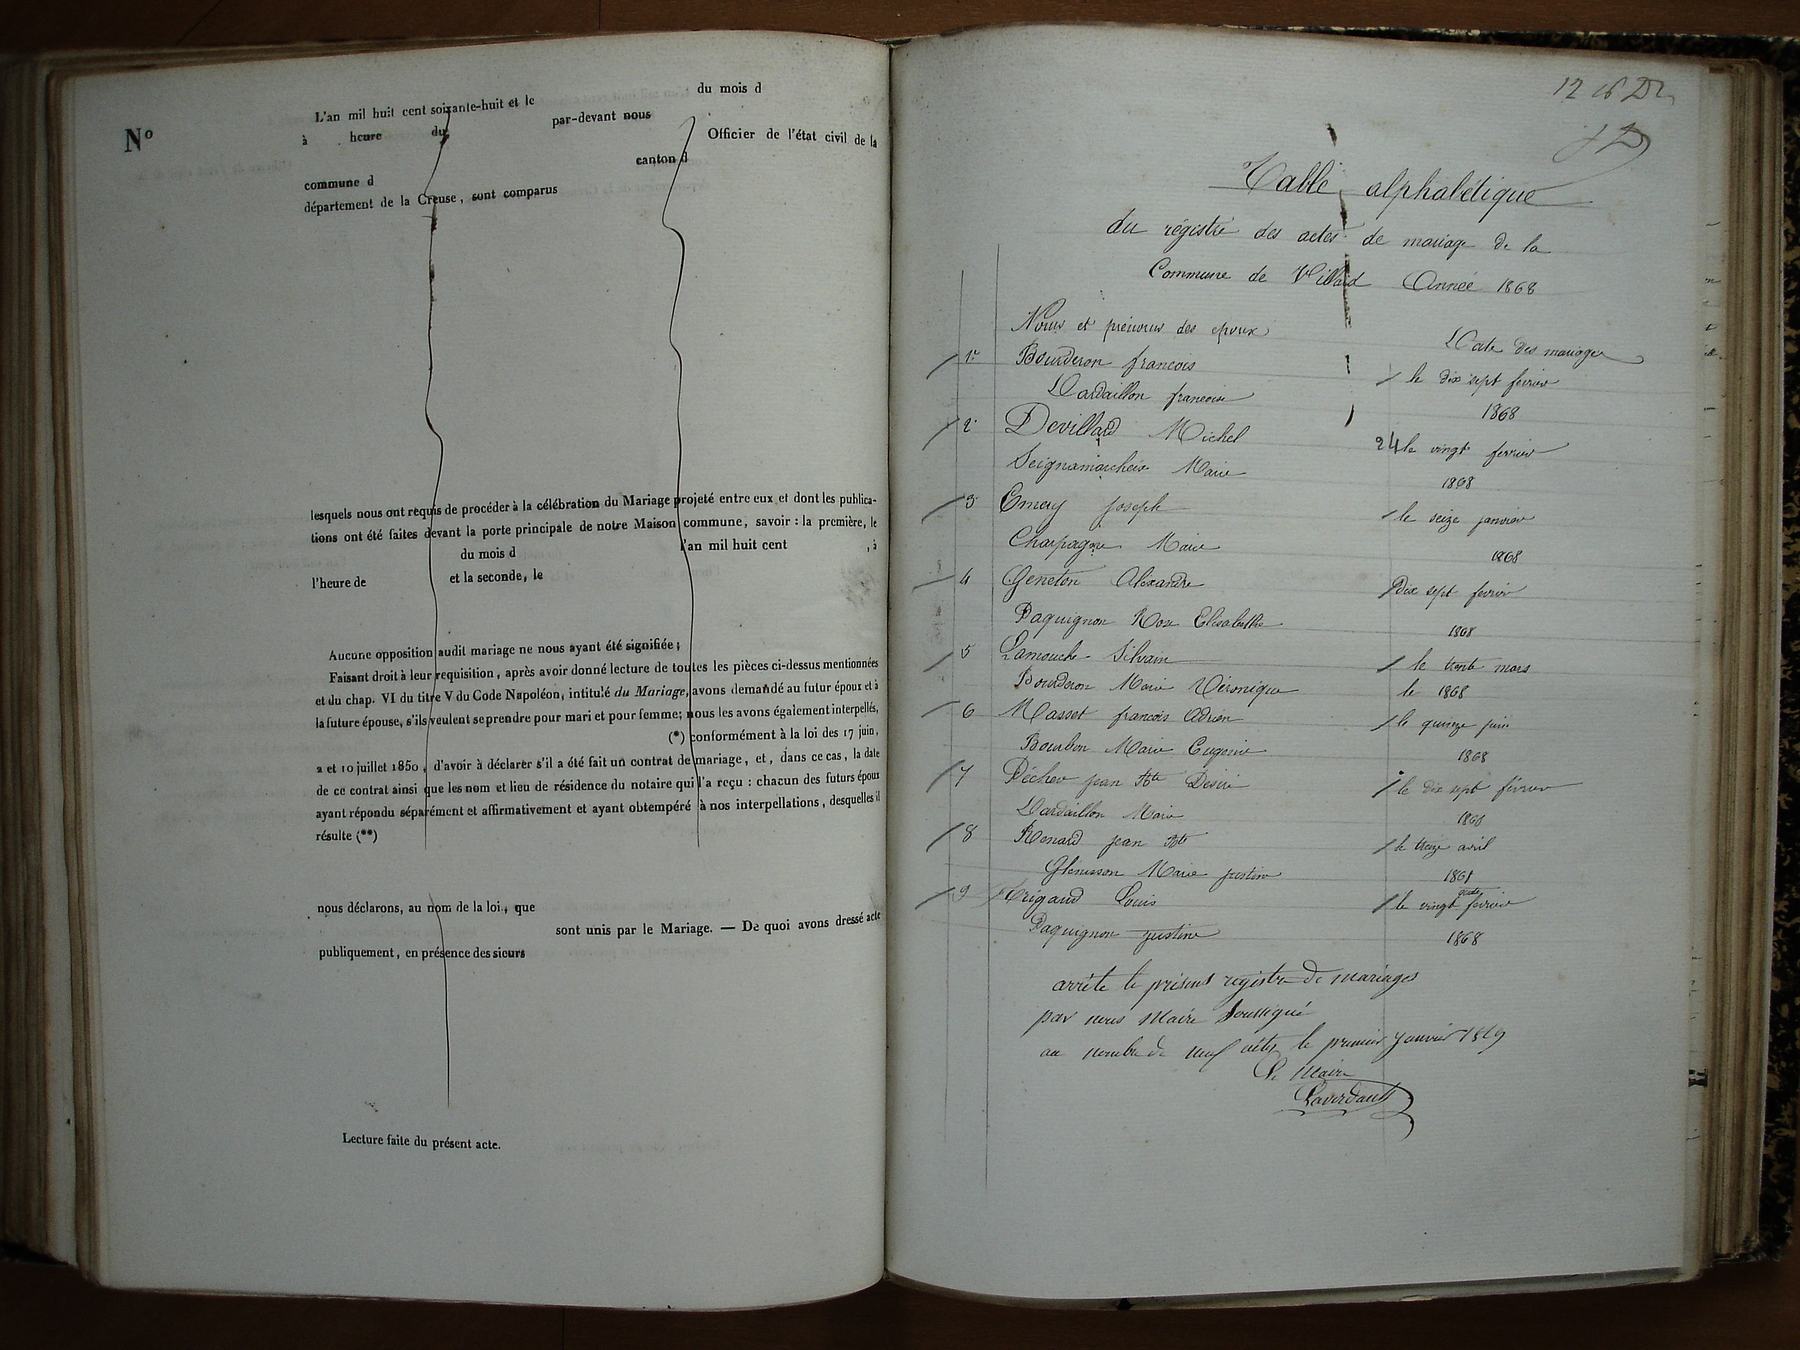 Nº
L'an mil huit cent soixante-huit et le du mois d
à heure du par-devant nous
Officier de l'état civil de la
commune d canton d
département de la Creuse, sont comparus
lesquels nous ont requis de procéder à la célébration du Mariage projeté entre eux et dont les publica-
tions ont été faites devant la porte principale de notre Maison commune, savoir : la première, le
du mois d l'an mil huit cent , à
l'heure de et la seconde, le
Aucune opposition audit mariage ne nous ayant été signifiée ;
Faisant droit à leur requisition, après avoir donné lecture de toutes les pièces ci-dessus mentionnées
et du chap. VI du titre V du Code Napoléon, intitulé du Mariage, avons demandé au futur époux et à
la future épouse, s'ils veulent se prendre pour mari et pour femme; nous les avons également interpellés,
(*) conformément à la loi des 17 juin,
2 et 10 juillet 1850, d'avoir à déclarer s'il a été fait un contrat de mariage, et, dans ce cas, la date
de ce contrat ainsi que les nom et lieu de résidence du notaire qui l'a reçu : chacun des futurs époux
ayant répondu séparément et affirmativement et ayant obtempéré à nos interpellations, desquelles il
résulte (**)
nous déclarons, au nom de la loi, que
sont unis par le Mariage. — De quoi avons dressé acte
publiquement, en présence des sieurs
Lecture faite du présent acte.
Table alphabétique
du régistre des actes de mariage de la
Commune de Villard Année 1868
Noms et prénoms des epoux
Date des mariages
1º Bourderon francois
le dix sept fevrier
Dardaillon francoise
1868
2º Devillard Michel
24 le vingt fevrier
Seignamarcheix Marie
1868
3 Emery joseph
le seize janvier
Charpagne Marie
1868
4 Geneton Alexandre
Dix sept fevrier
Paquignon Rose Elisabethe
1868
5 Lamouche Silvain
le trente mars
Bourderon Marie Véronique
le 1868
6 Masset francois Adrien
le quinze juin
Bourbon Marie Eugenie
1868
7 Pécher jean Bte Desiré
le dix sept février
Dardaillon Marie
1868
8 Renard jean Bte
le treize avril
Glenisson Marie justine
1868
9 Trigaud Louis
le vingt quatre fevrier
Paquignon justine
1868
arrête le présent registre de mariages
par nous Maire soussigné
au nombre de neuf actes le premier janvier 1869
Le Maire
Laverdant